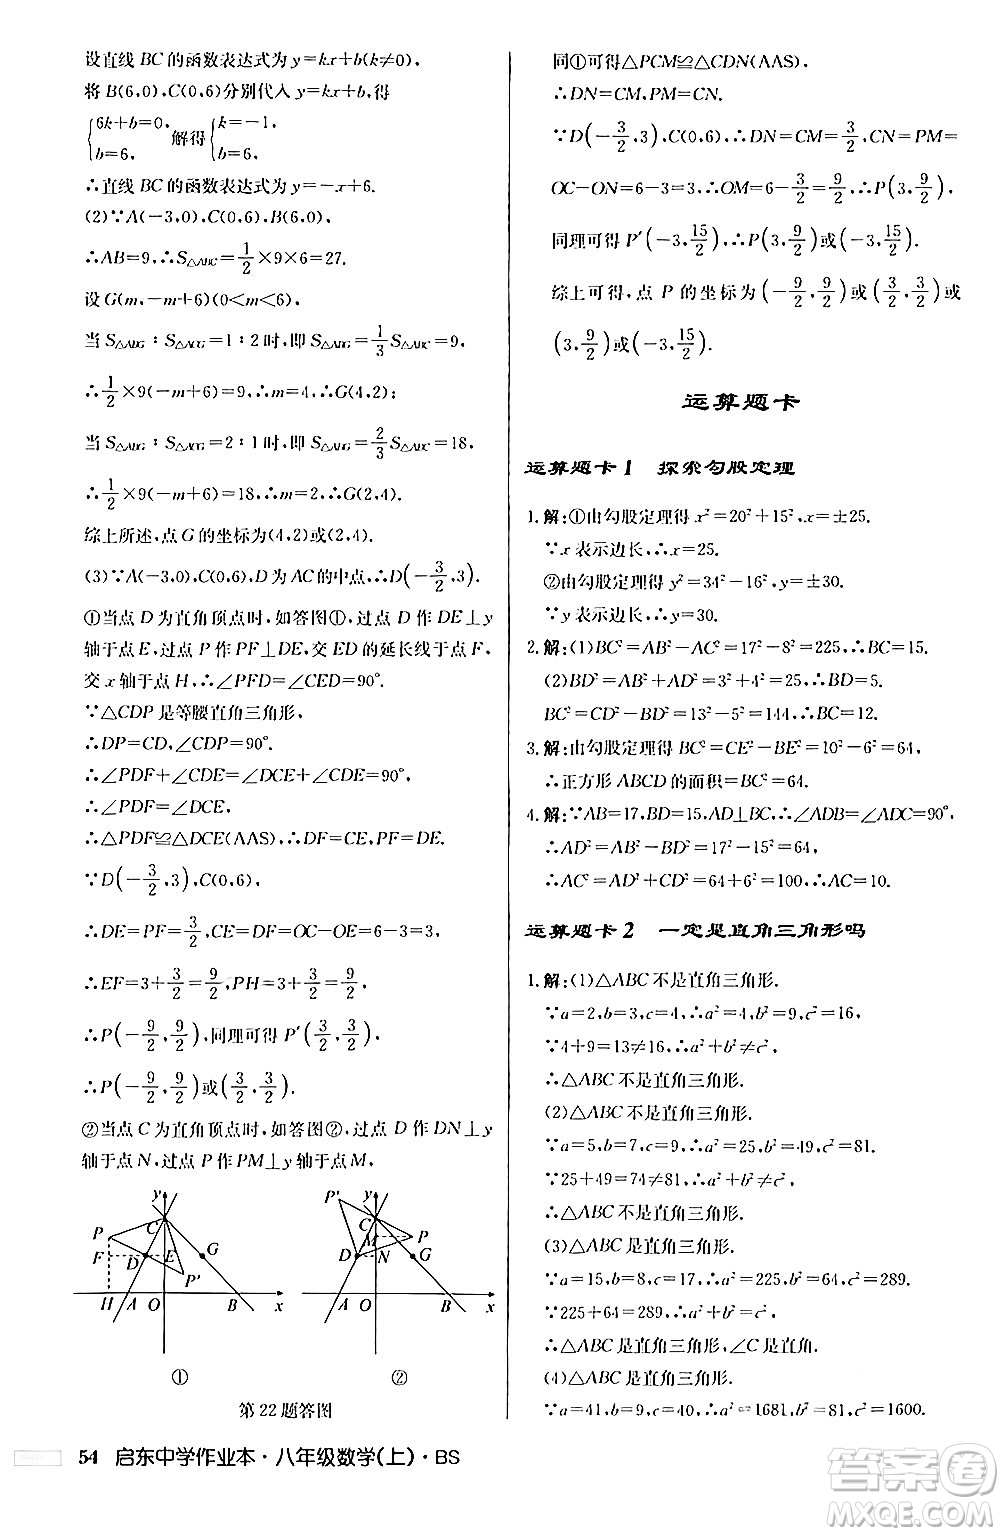 设直线 BC 的函数表达式为 y=kx+b(k≠0).
将 B(6,0),C(0,6)分别代入 y=kx+b,得
{6k+b=0, b=6, 解得{k=-1, b=6.
∴直线 BC 的函数表达式为 y=-x+6.
(2)∵A(-3,0),C(0,6),B(6,0),
∴AB=9,∴S△ABC=1/2×9×6=27.
设 G(m,-m+6)(0<m<6),
当 S△ABG∶S△ACG=1∶2 时,即 S△ABG=1/3 S△ABC=9,
∴1/2×9(-m+6)=9,∴m=4,∴G(4,2);
当 S△ABG∶S△ACG=2∶1 时,即 S△ABG=2/3 S△ABC=18,
∴1/2×9(-m+6)=18,∴m=2,∴G(2,4).
综上所述,点 G 的坐标为(4,2)或(2,4).
(3)∵A(-3,0),C(0,6),D 为 AC 的中点,∴D(-3/2,3).
①当点 D 为直角顶点时,如答图①,过点 D 作 DE⊥y
轴于点 E,过点 P 作 PF⊥DE,交 ED 的延长线于点 F,
交 x 轴于点 H,∴∠PFD=∠CED=90°.
∵△CDP 是等腰直角三角形,
∴DP=CD,∠CDP=90°.
∴∠PDF+∠CDE=∠CDE+∠DCE=90°,
∴∠PDF=∠DCE,
∴△PDF≌△DCE(AAS),∴DF=CE,PF=DE.
∵D(-3/2,3),C(0,6),
∴DE=PF=3/2,CE=DF=OC-OE=6-3=3,
∴EF=3+3/2=9/2,PH=3+3/2=9/2,
∴P(-9/2,9/2),同理可得 P'(3/2,3/2),
∴P(-9/2,9/2)或(3/2,3/2).
②当点 C 为直角顶点时,如答图②,过点 D 作 DN⊥y
轴于点 N,过点 P 作 PM⊥y 轴于点 M,
y C P F D E G P' H A O B x
①
P' y C M P D N G A O B x
②
第 22 题答图
54 启东中学作业本·八年级数学(上)·BS
同①可得△PCM≌△CDN(AAS),
∴DN=CM,PM=CN.
∵D(-3/2,3),C(0,6),∴DN=CM=3/2,CN=PM=
OC-ON=6-3=3,∴OM=6-3/2=9/2,∴P(3,9/2),
同理可得 P'(-3,15/2),∴P(3,9/2)或(-3,15/2).
综上可得,点 P 的坐标为(-9/2,9/2)或(3/2,3/2)或
(3,9/2)或(-3,15/2).
运算题卡
运算题卡 1 探索勾股定理
1.解:①由勾股定理得 x²=20²+15²,x=±25.
∵x 表示边长,∴x=25.
②由勾股定理得 y²=34²-16²,y=±30.
∵y 表示边长,∴y=30.
2.解:(1)BC²=AB²-AC²=17²-8²=225,∴BC=15.
(2)BD²=AB²+AD²=3²+4²=25,∴BD=5.
BC²=CD²-BD²=13²-5²=144,∴BC=12.
3.解:由勾股定理得 BC²=CE²-BE²=10²-6²=64,
∴正方形 ABCD 的面积=BC²=64.
4.解:∵AB=17,BD=15,AD⊥BC,∴∠ADB=∠ADC=90°,
∴AD²=AB²-BD²=17²-15²=64,
∴AC²=AD²+CD²=64+6²=100,∴AC=10.
运算题卡 2 一定是直角三角形吗
1.解:(1)△ABC 不是直角三角形.
∵a=2,b=3,c=4,∴a²=4,b²=9,c²=16,
∵4+9=13≠16,∴a²+b²≠c²,
∴△ABC 不是直角三角形.
(2)△ABC 不是直角三角形.
∵a=5,b=7,c=9,∴a²=25,b²=49,c²=81.
∵25+49=74≠81,∴a²+b²≠c²,
∴△ABC 不是直角三角形.
(3)△ABC 是直角三角形.
∵a=15,b=8,c=17,∴a²=225,b²=64,c²=289.
∵225+64=289,∴a²+b²=c²,
∴△ABC 是直角三角形,∠C 是直角.
(4)△ABC 是直角三角形.
∵a=41,b=9,c=40,∴a²=1681,b²=81,c²=1600.
答案圈
MXQE.COM